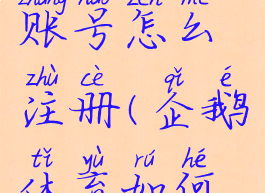 zhàng hào zěn me
账号怎么
zhù cè qǐ é
注册(企鹅
tǐ yù rú hé
体育如何